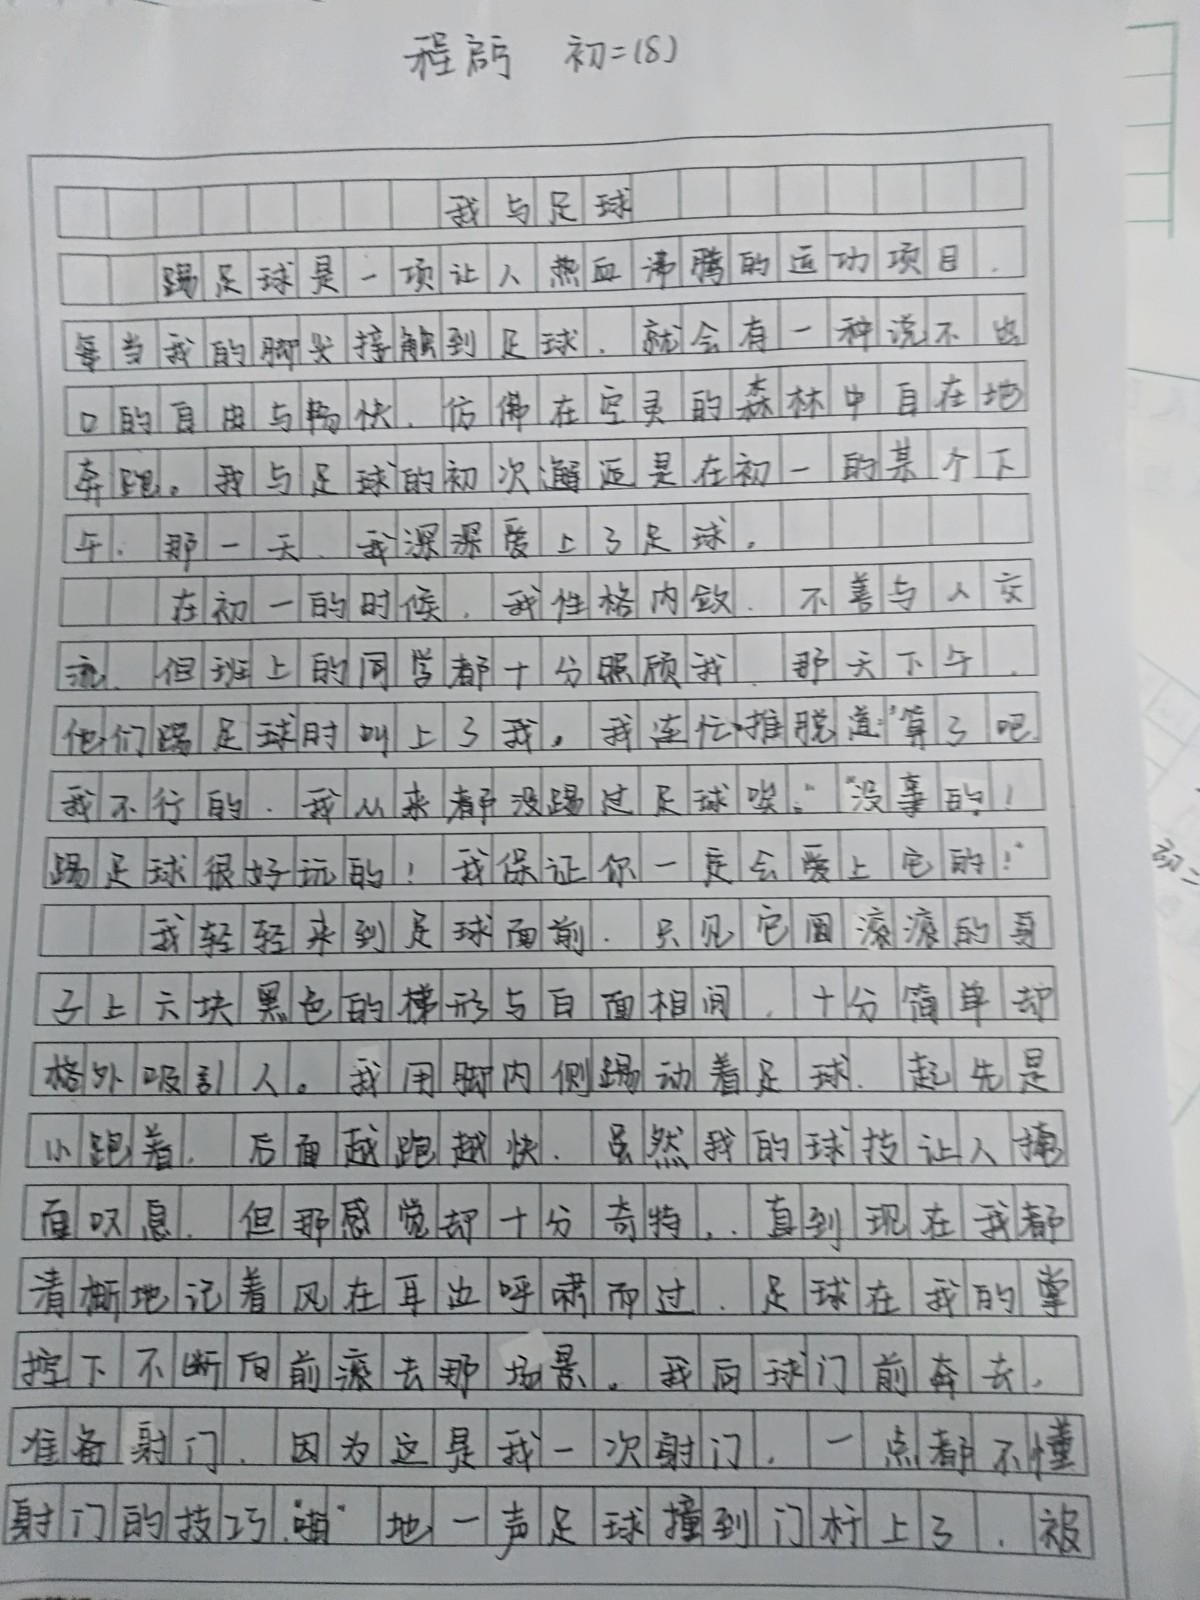 程启 初二(8)
我与足球
踢足球是一项让人热血沸腾的运功项目，
每当我的脚尖接触到足球，就会有一种说不出
口的自由与畅快，仿佛在空灵的森林中自在地
奔跑。我与足球的初次邂逅是在初一的某个下
午，那一天，我深深爱上了足球。
在初一的时候，我性格内敛，不善与人交
流，但班上的同学都十分照顾我，那天下午，
他们踢足球时叫上了我。我连忙推脱道：“算了吧
我不行的，我从来都没踢过足球唉。”“没事的！
踢足球很好玩的！我保证你一定会爱上它的！”
我轻轻来到足球面前，只见它圆滚滚的身
子上六块黑色的梯形与白面相间，十分简单却
格外吸引人。我用脚内侧踢动着足球，起先是
小跑着，后面越跑越快，虽然我的球技让人掩
面叹息，但那感觉却十分奇特，直到现在我都
清晰地记着风在耳边呼啸而过，足球在我的掌
控下不断向前滚去那场景。我向球门前奔去，
准备射门，因为这是我一次射门，一点都不懂
射门的技巧，“嘣”地一声足球撞到门杆上了，被